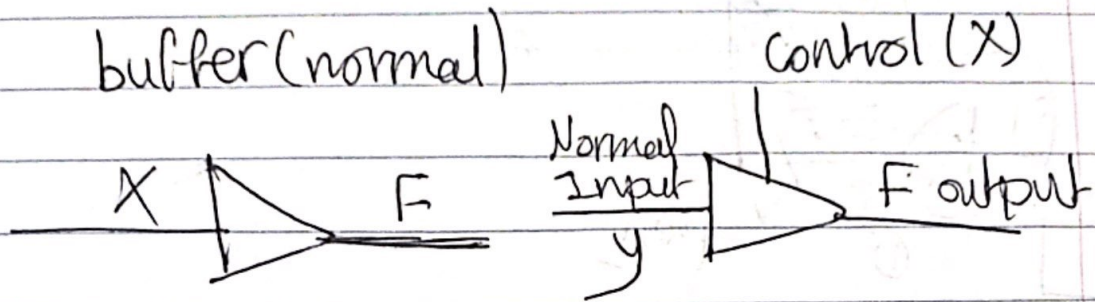 buffer (normal)
control (X)
X
F
Normal
Input
y
F output